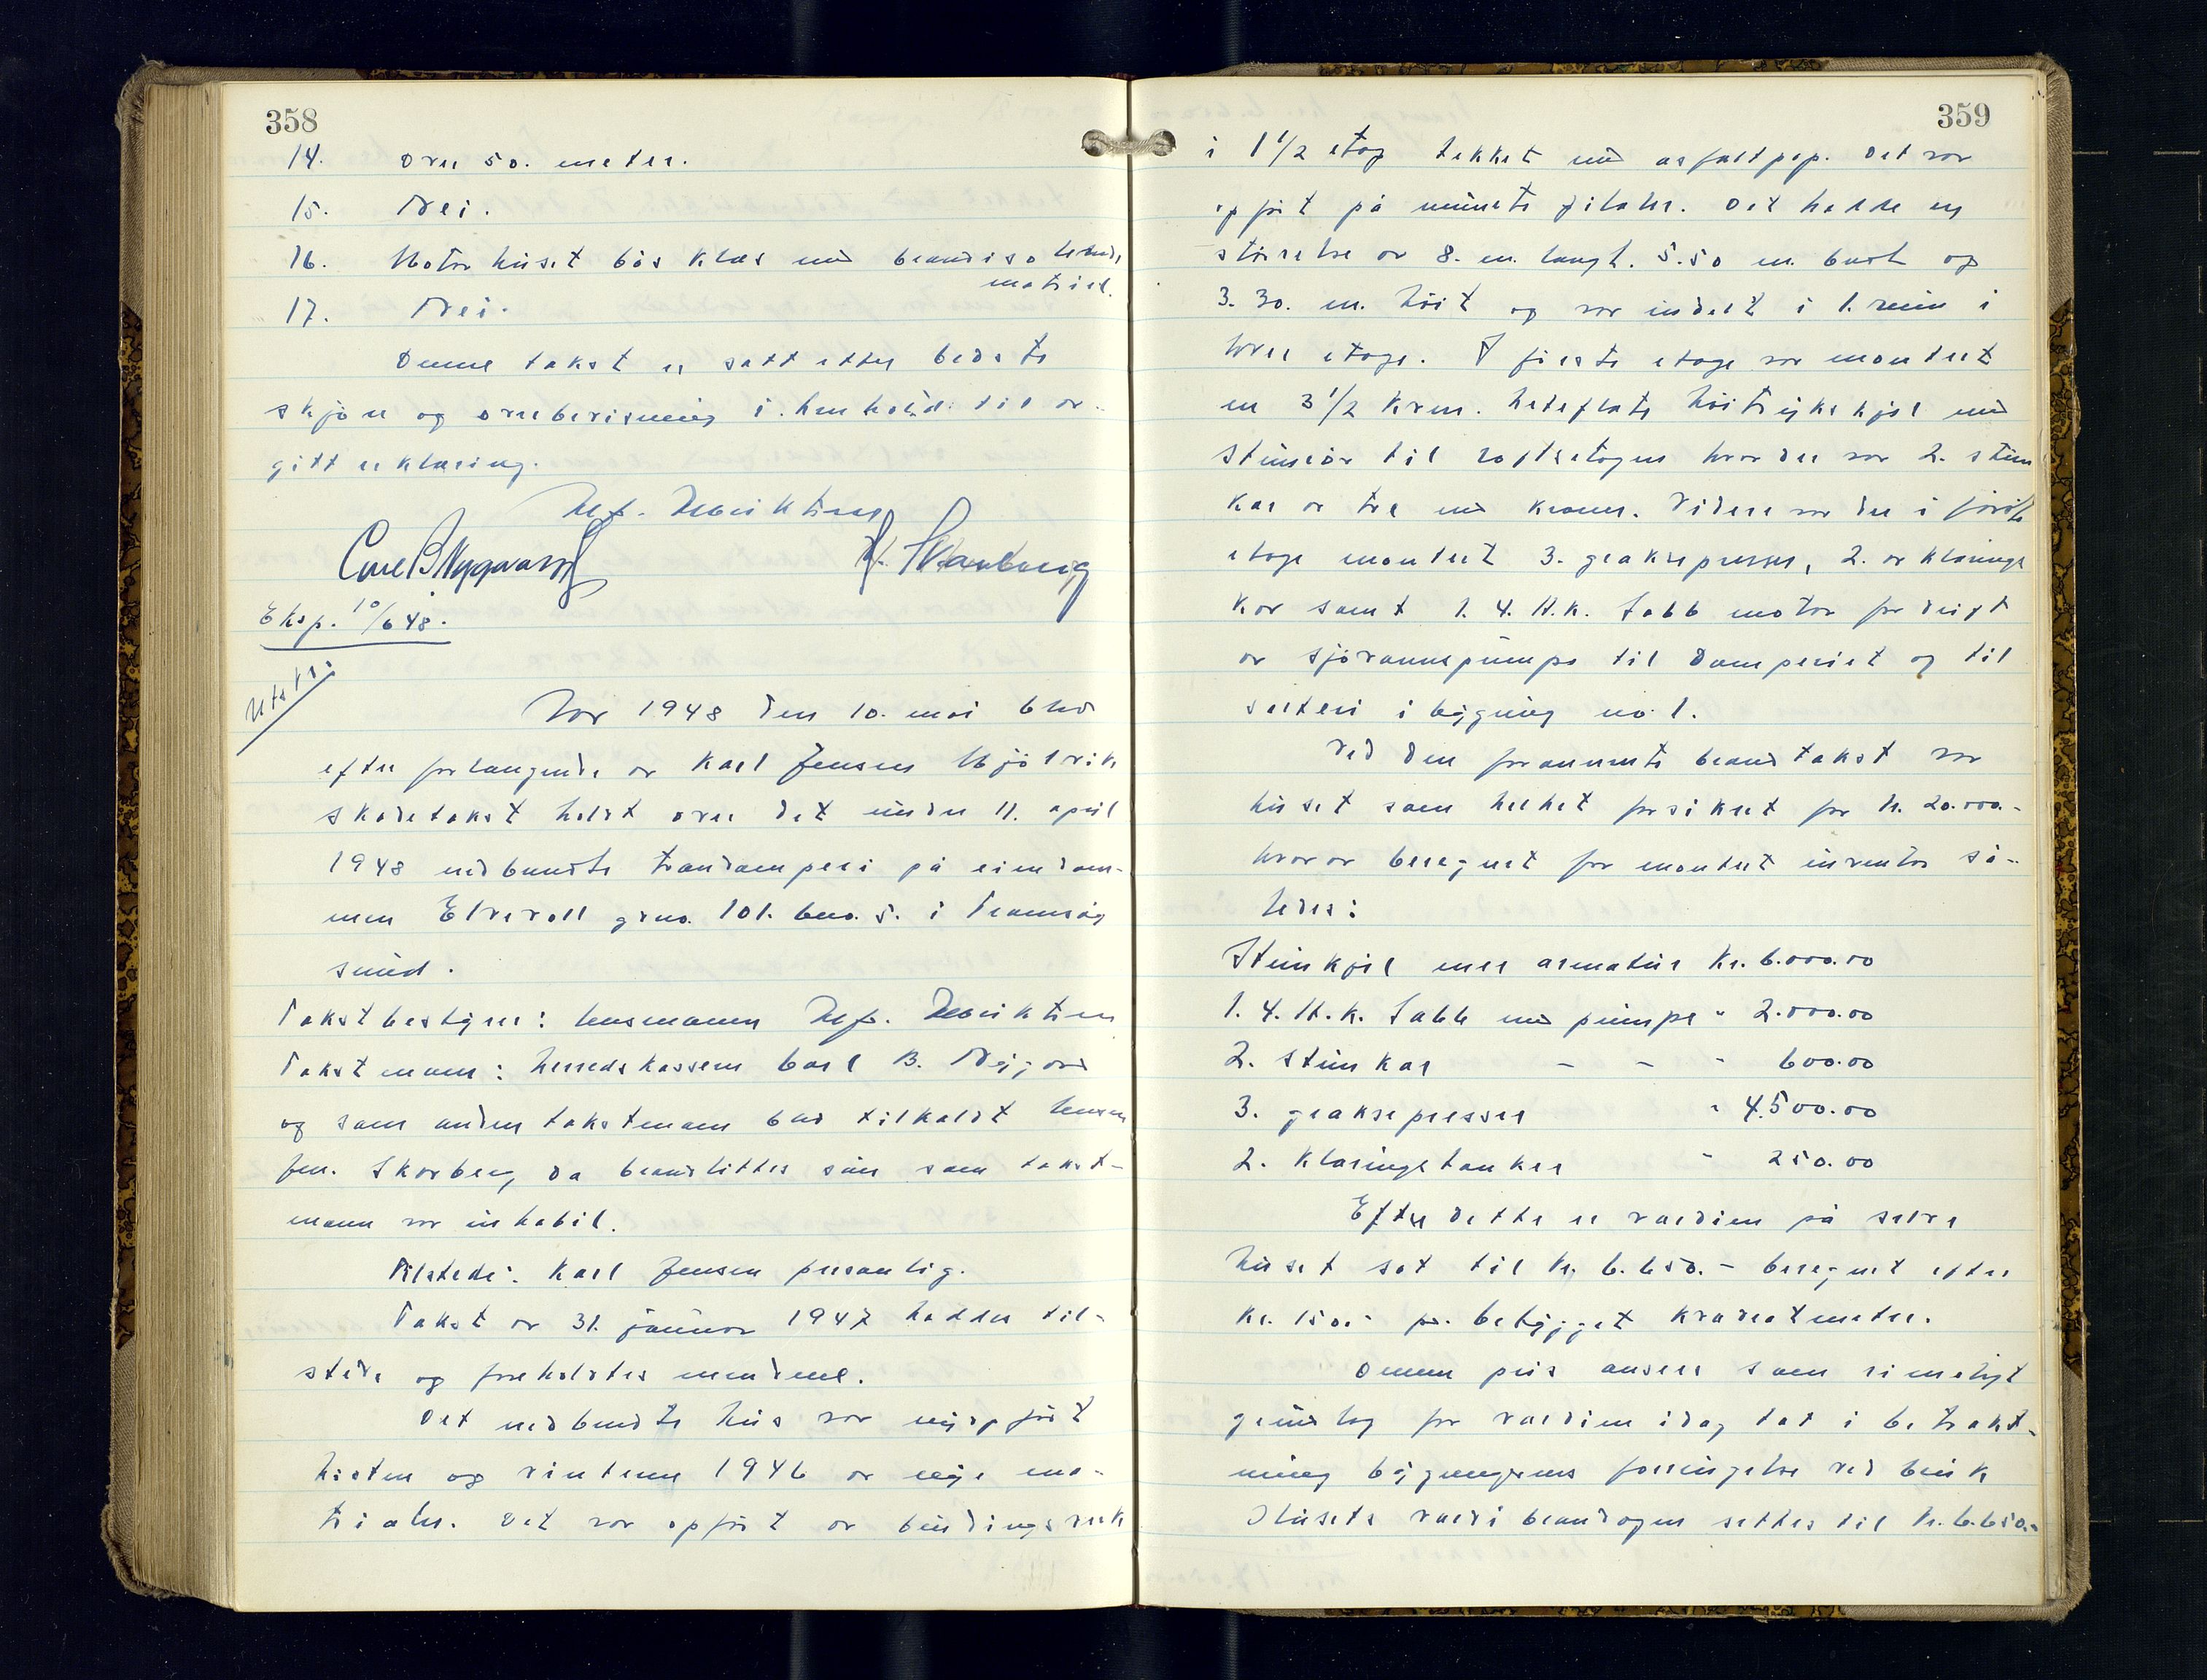 358
14. Over 50. meter.
15. Nei.
16. Motorhuset bös klæs med brandisolerende
matriel.
17. Nei.
Denne takst er satt etter bedste
skjön og overbevisning i. henhold. til av-
gitt erklæring.
Alf. Henriktsen
Carl B Nygaard H. Skarberg
Eksp. 10/6 48.
Utstr:
Aar 1948 den 10. mai blev
efter forlangende av Karl Jensen Mjölvik
skadetakst holdt over det under 11. april
1948 nedbrendte trandamperi på eiendom-
men Elvevoll grno. 101. bno. 5. i Tromsöy
sund.
Takstbestyrer: lensmann Alf. Henriktsen
Takstmann: herredskasserer Carl B. Nygård
og som anden takstmann blev tilkaldt lensm
fm. Skarberg, da brandlidtes svin som takst-
mann var inhabil.
Tilstede: Karl Jensen personlig.
Takst av 31. januar 1947 haddes til-
stede og foreholdtes mendene.
Det nedbrendte hus var nyopfört
hösten og vinteren 1946 av nye ma-
trialer. Det var opfört av bindingsverk
359
i 1 1/2 etag tekket med asfaltpap. Det var
opfört på murete pilaler. Det hadde en
störrelse av 8. m. langt. 5.50 m. bredt og
3.30. m. höit og var indelt i 1. rum i
hver etage. I förste etage var montert
en 3 1/2 kvm. heteflate höitrykskjel med
stimrör til loftsetagen hvor der var 2. stim
kar av tre med kraner. Videre var der i förste
etage montert 3. graksepresser, 2. av klarings
kar samt 1. 4. H.K. Sabb motor for drift
av sjövannspumpe til damperiet og til
salteri i bygning no 1.
Ved den forannevnte brandtakst var
huset som helhet forsikret for kr. 20.000.-
hvorav beregnet for montert inventar så-
ledes:
Stimkjel mer armatur Kr. 6.000.00
1. 4. H.K. Sabb med pumpe " 2.000.00
2. stimkar - - " 600.00
3. graksepresser " 4.500.00
2. Klaringstanker " 250.00
Efter dette er værdien på selve
huset sat til kr. 6.650.- beregnet efter
kr. 150.- pr. bebygget kvadratmeter.
Denne pris ansees som rimeligt
grundlag for værdien idag tat i betrakt-
ning bygningens forringelse ved bruk
Husets værdi branddagen settes til kr. 6.650.-